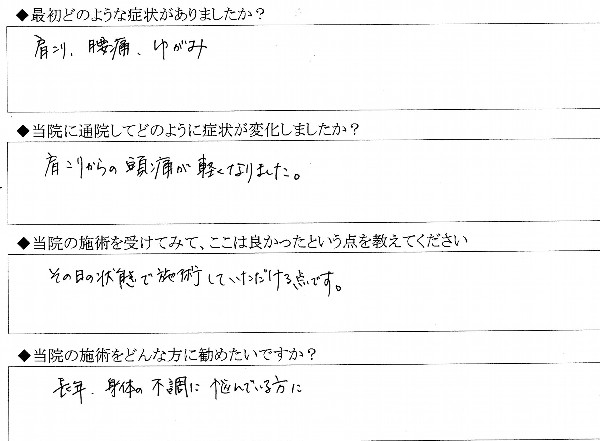 ◆最初どのような症状がありましたか？
肩こり、腰痛、ゆがみ
◆当院に通院してどのように症状が変化しましたか？
肩こりからの頭痛が軽くなりました。
◆当院の施術を受けてみて、ここは良かったという点を教えてください
その日の状態で施術していただける点です。
◆当院の施術をどんな方に勧めたいですか？
長年、身体の不調に悩んでいる方に